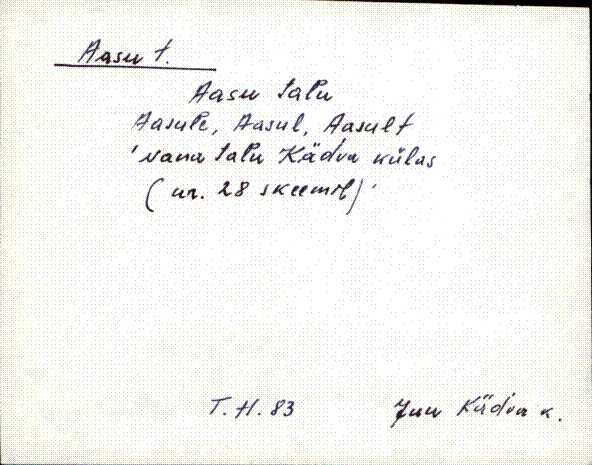 Aasu t.
Aasu talu
Aasule, Aasul, Aasult
'vana talu Kädva külas
(nr. 28 skeemil)'
T. H. 83
Juu Kädva k.